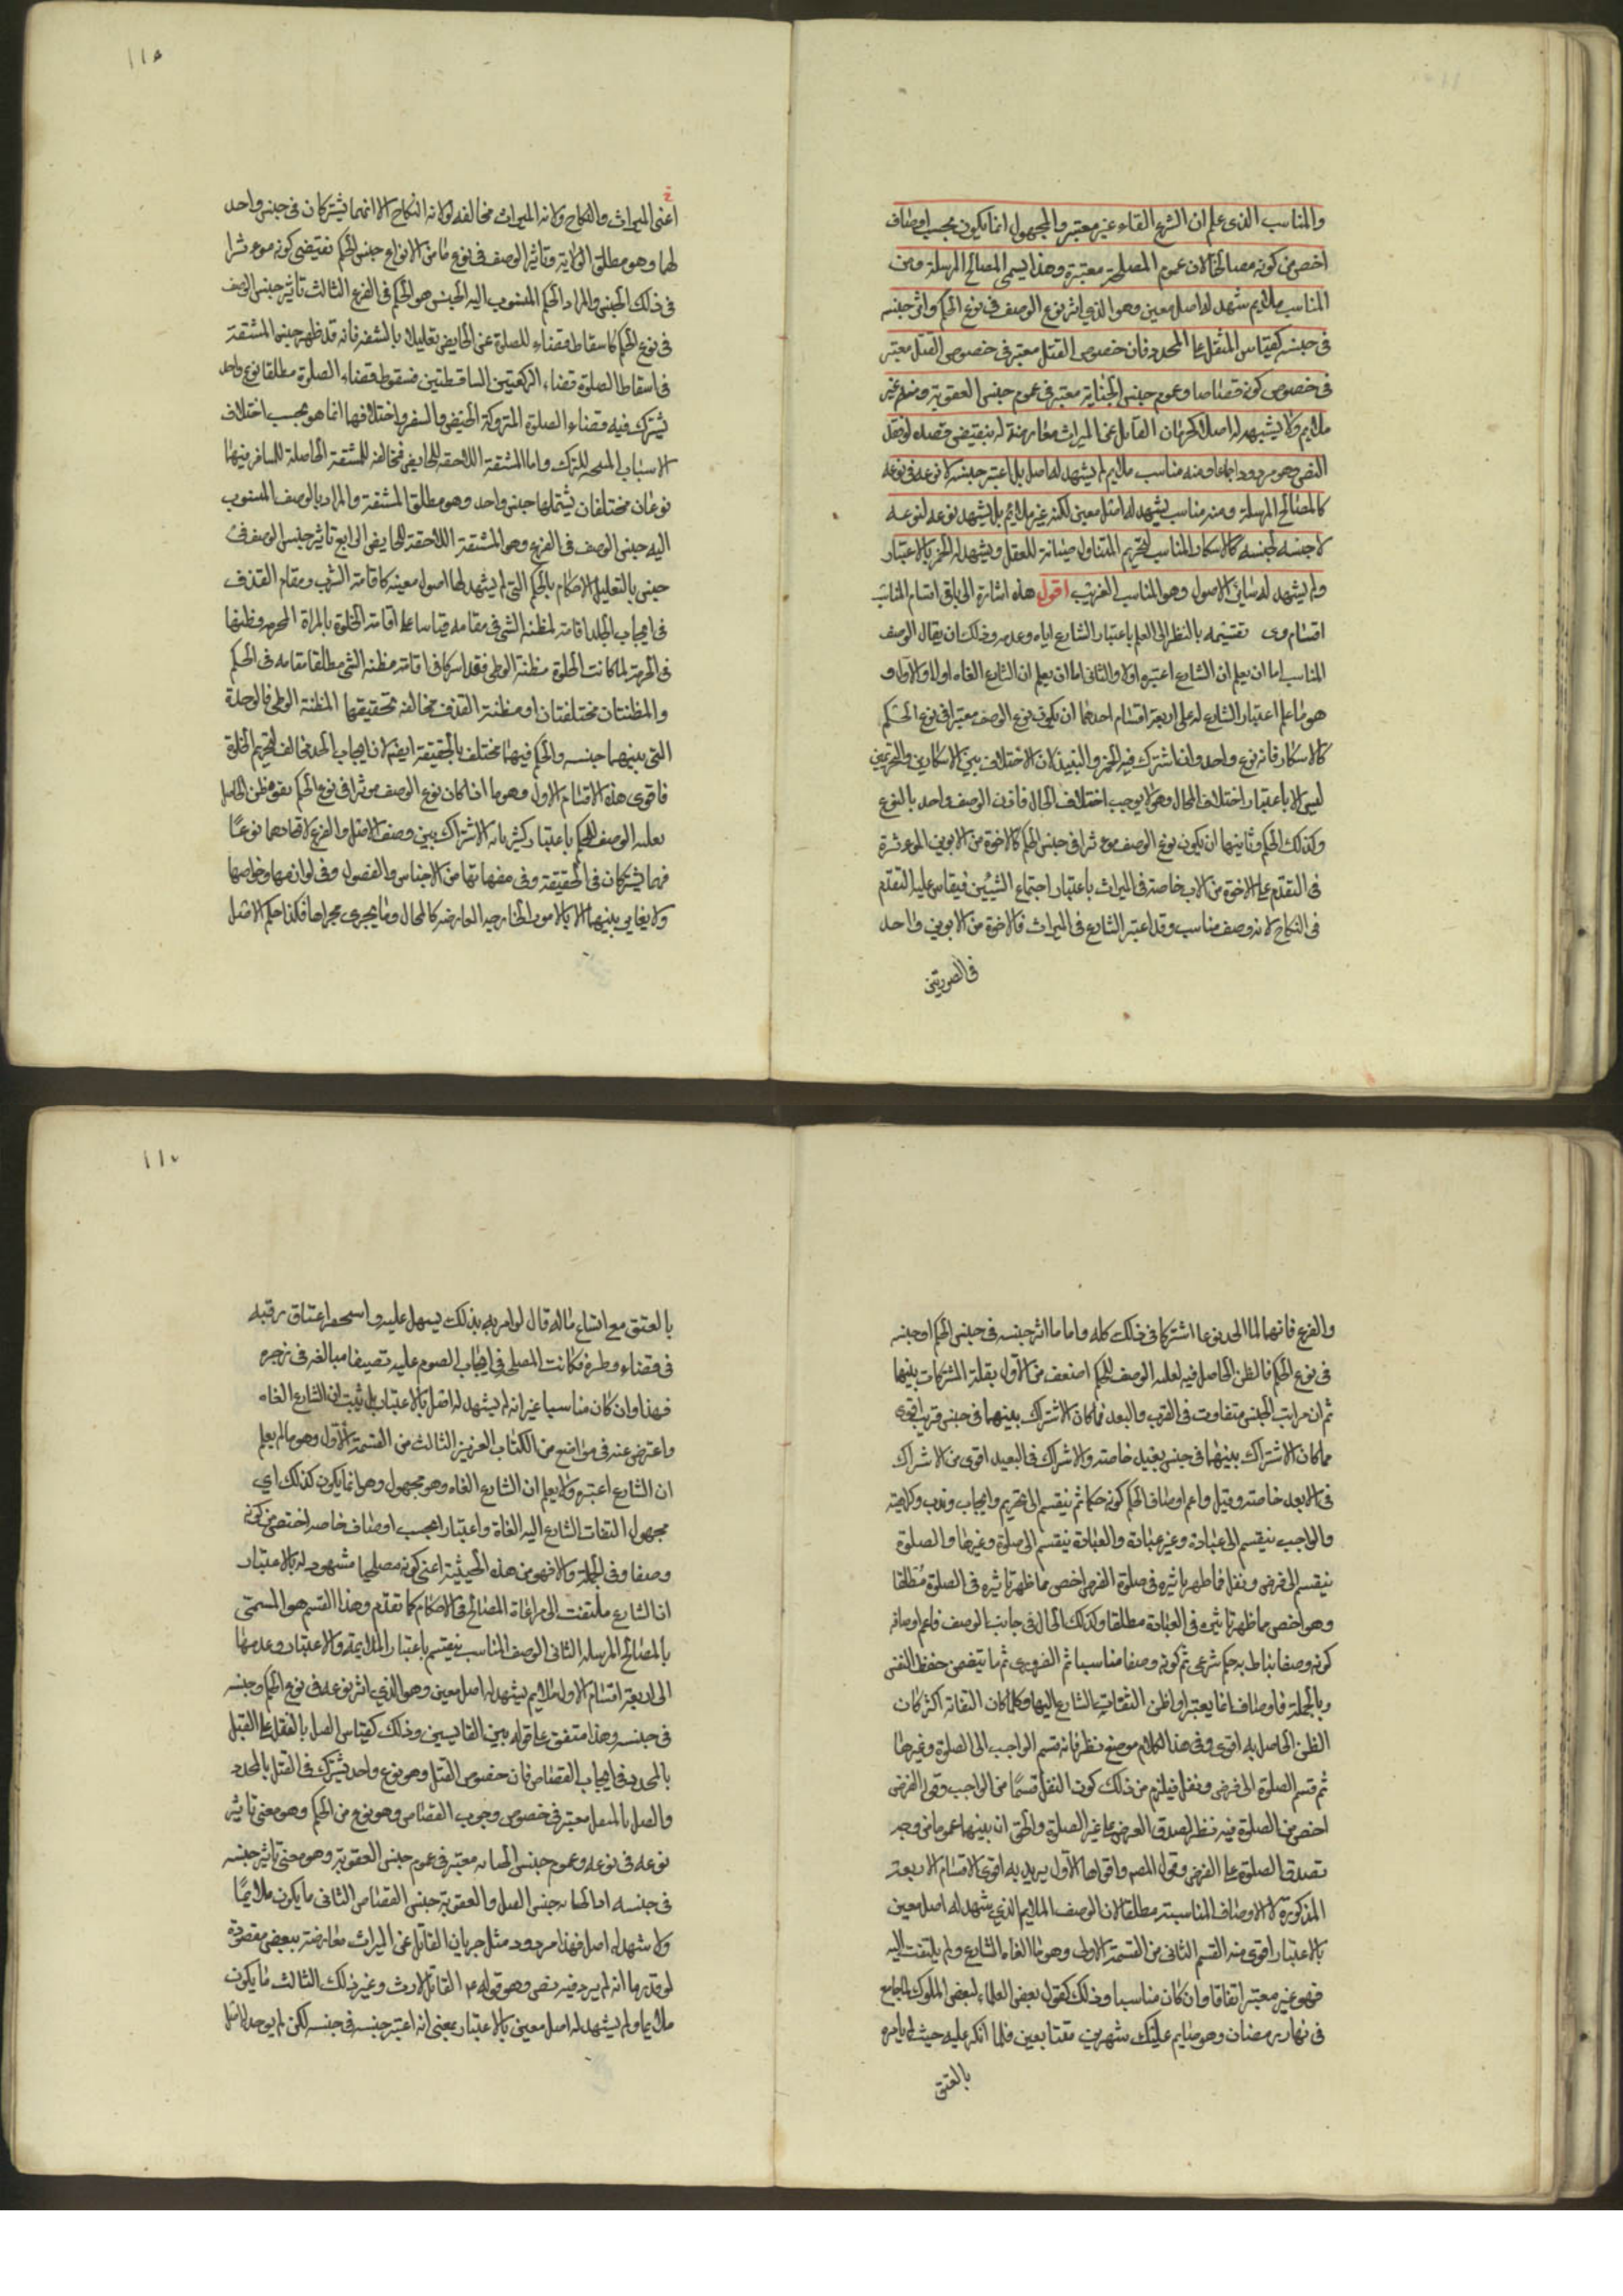 والمناسب الذى علم ان الشرع القاء غير معتبر والمجهول انما يكون بحسب اوصاف
اخص من كونه مصالحا لان عموم المصلحة معتبرة وهذا يسمى المصالح المرسلة ومن
المناسب ملايم شهد له اصل معين وهو الذي اثر نوع الوصف فى نوع الحكم واثر جنسه
فى جنسه كقياس المثقل على المحدد فان خصوص القتل معتبر فى خصوص القتل معتبر
فى خصوص كونه قصاصا وعموم جنس الجناية معتبر فى عموم جنس العقوبة ومنه غير
ملايم ولا يشهد له اصل كحرمان القاتل عن الميراث معارضة له بنقيض قصده لو نقل
النص وهو مردود اجماعا ومنه مناسب ملايم لم يشهد له اصل بل اعتبر جنسه لا نوعه فى نوعه
كالمصالح المرسلة ومنه مناسب يشهد له اصل معين لكنه غير ملايم بل يشهد نوعه لنوعه
لا جنسه لجنسه كالاسكار المناسب لتحريم المتناول صيانة للعقل ويشهد له الخمر بالاعتبار
ولم يشهد له ساير الاصول وهو المناسب الغريب اقول هذه اشارة الى باقى اقسام المناسب
اقسام وى تقسيمه بالنظر الى العلم باعتبار الشارع اياه وعدمه وذلك ان يقال الوصف
المناسب اما ان يعلم ان الشارع اعتبره اولا والثانى اما ان يعلم ان الشارع الغاه اولا والاول و
هو ما علم اعتبار الشارع له على اربعة اقسام احدها ان يكون نوع الوصف معتبرا فى نوع الحكم
كالاسكار فانه نوع واحد وان اشترك فيه الخمر والنبيذ لان الاختلاف بين الاسكارين والتحريمين
ليس الا باعتبار اختلاف المحال وهو لا يوجب اختلاف الحال فاذن الوصف واحد بالنوع
وكذلك الحكم وثانيها ان يكون نوع الوصف موءثرا فى جنس الحكم كالاخوة من الابوين الموءثرة
فى التقدم على الاخوة من الاب خاصة فى الميراث باعتبار اجتماع السببين فيقاس عليه التقدم
فى النكاح لانه وصف مناسب وقد اعتبر الشارع فى الميراث فالاخوة من الابوين واحد
فى الصورتين
١١٥
اعنى الميراث والنكاح ولانه الميراث مخالفه لولاية النكاح الا انهما يشتركان فى جنس واحد
لهما وهو مطلق الولاية وتاثير الوصف فى نوع ما من الانواع جنس الحكم يقتضى كونه موءثرا
فى ذلك الجنس والمراد الحكم المنسوب اليه الجنس هو الحكم فى الفرع الثالث تاثير جنس الوصف
فى نوع الحكم كاسقاط قضاء الصلوة عن الحايض تعليلا بالمشقه فانه قد ظهر جنس المشقة
فى اسقاط الصلوة قضاء الركعتين الساقطتين فسقوط قضاء الصلوة مطلقا نوع واحد
يشترك فيه قضاء الصلوة المتروكة الحيض والسفر واختلافها انما هو بحسب اختلاف
الاسباب المبيحه للترك واما المشقة اللاحقه للحايض فمخالفه للمشقة الحاصلة للمسافر فيهما
نوعان مختلفان يشتملها جنس واحد وهو مطلق المشقة والمراد بالوصف المنسوب
اليه جنس الوصف فى الفرع وهو المشقة اللاحقة للحايض الرابع تاثير جنس الوصف فى
جنس بالتعليل الاحكام بالحكم التى لم يشهد لها اصول معينه كاقامة الشرب ومقام القذف
فى ايجاب الجلد اقامة لمظنة الشى فى مقامه قياسا على اقامة الخلوة بالمراة المحرم وطئها
فى الحرمة لما كانت الخلوة مظنة الوطى فقد اشتركا فى اقامة مظنه الشى مطلقا مقامه فى الحكم
والمظنتان مختلفتان او مظنة القذف مخالفه تحقيقها المظنة الوطى فالوحدة
التى بينهما جنسه والحكم فيهما مختلف بالحقيقة ايضا لان ايجاب الحد مخالف لتحريم الخلوة
فاقوى هذه الاقسام الاول وهو ما اذا كان نوع الوصف موثرا فى نوع الحكم بقوة ظن الحاصل
بعليه الوصف للحكم باعتبار كثير مابه الاشتراك بين وصف الاصل والفرع لاتحادهما نوعًا
فهما يشتركان فى الحقيقة وفى مفهاتها من الاجناس والفصول وفى لوازمها وخواصها
ولا يغاير بينهما الا بالامور الخارجيه العارضه كالمحال وما يجرى مجراها فكذا حكم الاصل
والفرع فانهما لما اتحدا نوعا اشتركا فى ذلك كله واما ما اثر جنسه فى جنس الحكم او جنسه
فى نوع الحكم فالظن الحاصل فيه لعليه الوصف للحكم اضعف من الاول بقلة المشتركات بينهما
ثم ان مراتب الجنس متفاوت فى القرب والبعد فما كان الاشتراك بينهما فى جنس قريب اقوى
مما كان الاشتراك بينهما فى جنس بعيد خاصته والاشراك فى البعيد اقوى من الاشراك
فى الابعد خاصته وقيل واعم اوصاف الحكم كونه حكما ثم ينقسم الى تحريم وايجاب وندب وكراهية
والواجب ينقسم الى عبادة وغير عبادة والعبادة ينقسم الى صلوة وغيرها والصلوة
ينقسم الى فرض ونفل فما ظهر تاثيره فى صلوة الفرض اخص مما ظهر تاثيره فى الصلوة مطلقا
وهو اخص مما ظهر تاثيره فى العبادة مطلقا وكذلك الحال فى جانب الوصف فاعم اوصافه
كونه وصفا يناط به حكم شرعى ثم كونه وصفا مناسبا ثم الضرورى ثم ما يتضمن حفظ النفس
وبالجملة فاوصاف انما يعتبر اذا ظن التفات الشارع اليها وكلما كان التفاته اكثر كان
الظن الحاصل به اقوى وفى هذا الكلام موضع نظر فانه قسم الواجب الى الصلوة وغيرها
ثم قسم الصلوة الى فرض ونفل فيلزم من ذلك كون النفل قسمًا من الواجب وقوله الفرض
اخص من الصلوة فيه نظر لصدق الفرض على غير الصلوة والحق ان بينهما عموما من وجه
تصدق الصلوة على الفرض وقول المص واقواها الاول يريد به اقوى الاقسام الاربعة
المذكورة لا الاوصاف المناسبة مطلقا لان الوصف الملايم الذي شهد له اصل معين
بالاعتبار اقوى منه القسم الثانى من القسمة الاولى وهو ما الغاه الشارع ولم يلتفت اليه
فهو غير معتبر اتفاقا وان كان مناسبا وذلك كقول بعض العلماء لبعض الملوك لما جامع
فى نهار رمضان وهو صايم عليك شهرين متتابعين فلما انكر عليه حيث لم يامره
بالعتق
١١٧
بالعتق مع اتساع ماله قال لو امر به بذلك يسهل عليه و اعتاق رقبه
فى قضاء وطره فكانت المصلحة فى ايجاب الصوم عليه تضييقا مبالغه فى زجره
فهذا وان كان مناسبا غير انه لم يشهد له اصل بالاعتبار بل ثبت ان الشارع الغاه
واعترض عنه فى مواضع من الكتاب العزيز الثالث من القسمة الاول وهو ما لم يعلم
ان الشارع اعتبره ولا يعلم ان الشارع الغاه وهو مجهول وهو انما يكون كذلك اي
مجهول التفات الشارع اليه الغاة واعتبارا بحسب اوصاف خاصه اخص من كونه
وصفا وفى الجملة والا فهو من هذه الحيثية اعنى كونه مصلحيا مشهود له بالاعتبار
اذ الشارع ملتفت الى مراعاة المصالح فى الاحكام كما تقدم وهذا القسم هو المسمى
بالمصالح المرسله الثانى الوصف المناسب ينقسم باعتبار الملايمة والاعتبار وعدمها
الى اربعة اقسام الاول ملايم يشهد له اصل معين وهو الذي اثر نوعه فى نوع الحكم وجنسه
فى جنسه وهذا متفق على قوله بين القايسين وذلك كقياس القتل بالثقل على القتل
بالمحدد فى ايجاب القصاص فان خصوص القتل وهو نوع واحد يشترك فى القتل بالمحدد
والقتل بالمثقل معتبر فى خصوص وجوب القصاص وهو نوع من الحكم وهو معنى تاثير
نوعه فى نوعه وعموم جنس الجناية معتبر فى عموم جنس العقوبة وهو معنى تاثير جنسه
فى جنسه اذ الجناية جنس القتل والعقوبة جنس القصاص الثانى ما يكون ملايمًا
ولا شهد له اصل فهذا مردود مثل حرمان القاتل عن الميراث معارضة بنقيض مقصوده
لو قدرنا انه لم يرد فيه نص وهو قوله القاتل لا يرث وغير ذلك الثالث ما يكون
ملايما ولم يشهد له اصل معين بالاعتبار بمعنى انه اعتبر جنسه فى جنسه لكن لم يوجد له اصل